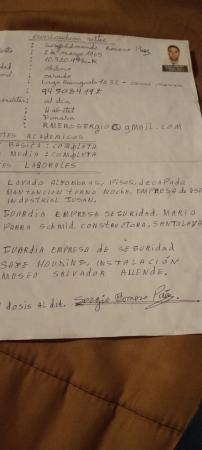 Curriculum Vitae
: Sergio Armando Romero Páez
: 2 de marzo 1969
: Chilena
: casado
: al día
: Habitat
: Fonasa
: RMEROSERGIO@GMAIL.COM
TES ACADEMICOS
BASICA : COMPLETA
MEDIA : COMPLETA
TES LABORALES
LAVADO ALFOMBRAS, PISOS, DECAPADO
MANTENCION TURNO NOCHE. EMPRESA DE ASE
INDUSTRIAL IUSAN.
GUARDIA EMPRESA SEGURIDAD. MARIO
PARRA SCHMID. CONSTRUCTORA, SANTOLAYA
GUARDIA EMPRESA DE SEGURIDAD
SAFE HOUDING, INSTALACIÓN
MUSEO SALVADOR ALLENDE.
DOSIS AL DIA. Sergio Romero Páez